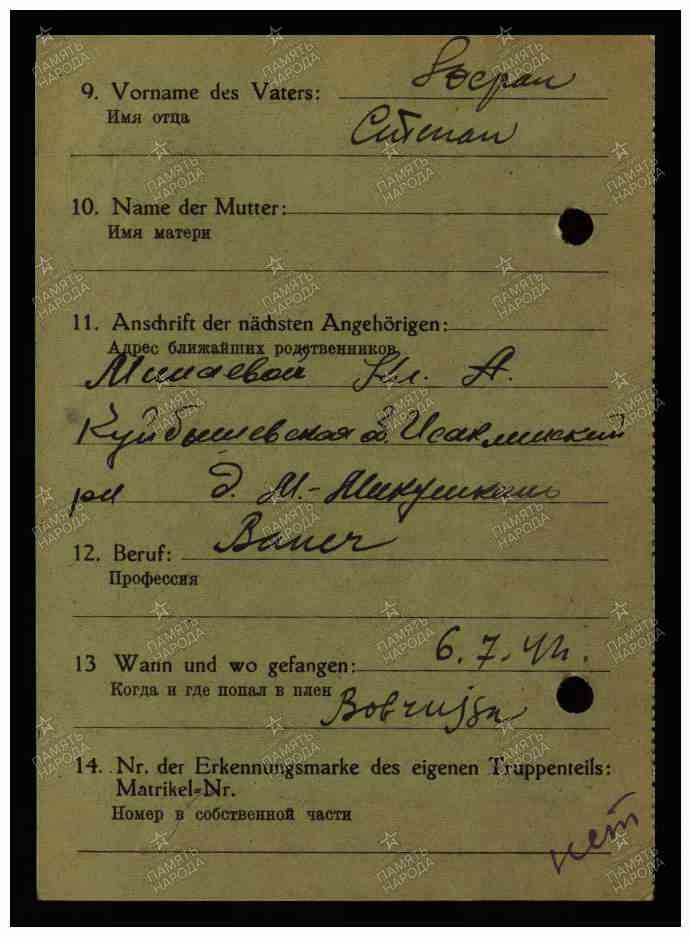 9. Vorname des Vaters:
Имя отца
Ситепан
10. Name der Mutter:
Имя матери
11. Anschrift der nächsten Angehörigen:
Адрес ближайших родственников
Минаевой Кл. А.
Куйбышевская о. Исаклинский
рн д. М.-Микушкино
12. Beruf: Bauer
Профессия
13 Wann und wo gefangen: 6.7.41.
Когда и где попал в плен
Bobrujsk
14. Nr. der Erkennungsmarke des eigenen Truppenteils:
Matrikel=Nr.
Номер в собственной части
нет
ПАМЯТЬ НАРОДА